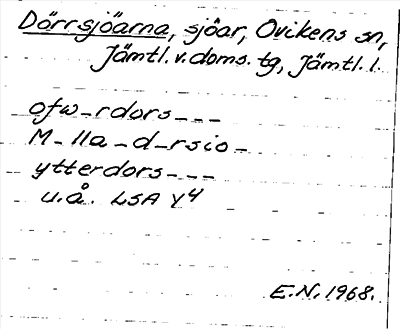 Dörrsjöarna, sjöar, Ovikens sn,
Jämtl. v. doms. tg, Jämtl. l.
ofw_rdors _ _ _
M_lla_d_rsio_
ytterdors _ _ _
u.å. LSA Y4
E.N. 1968.